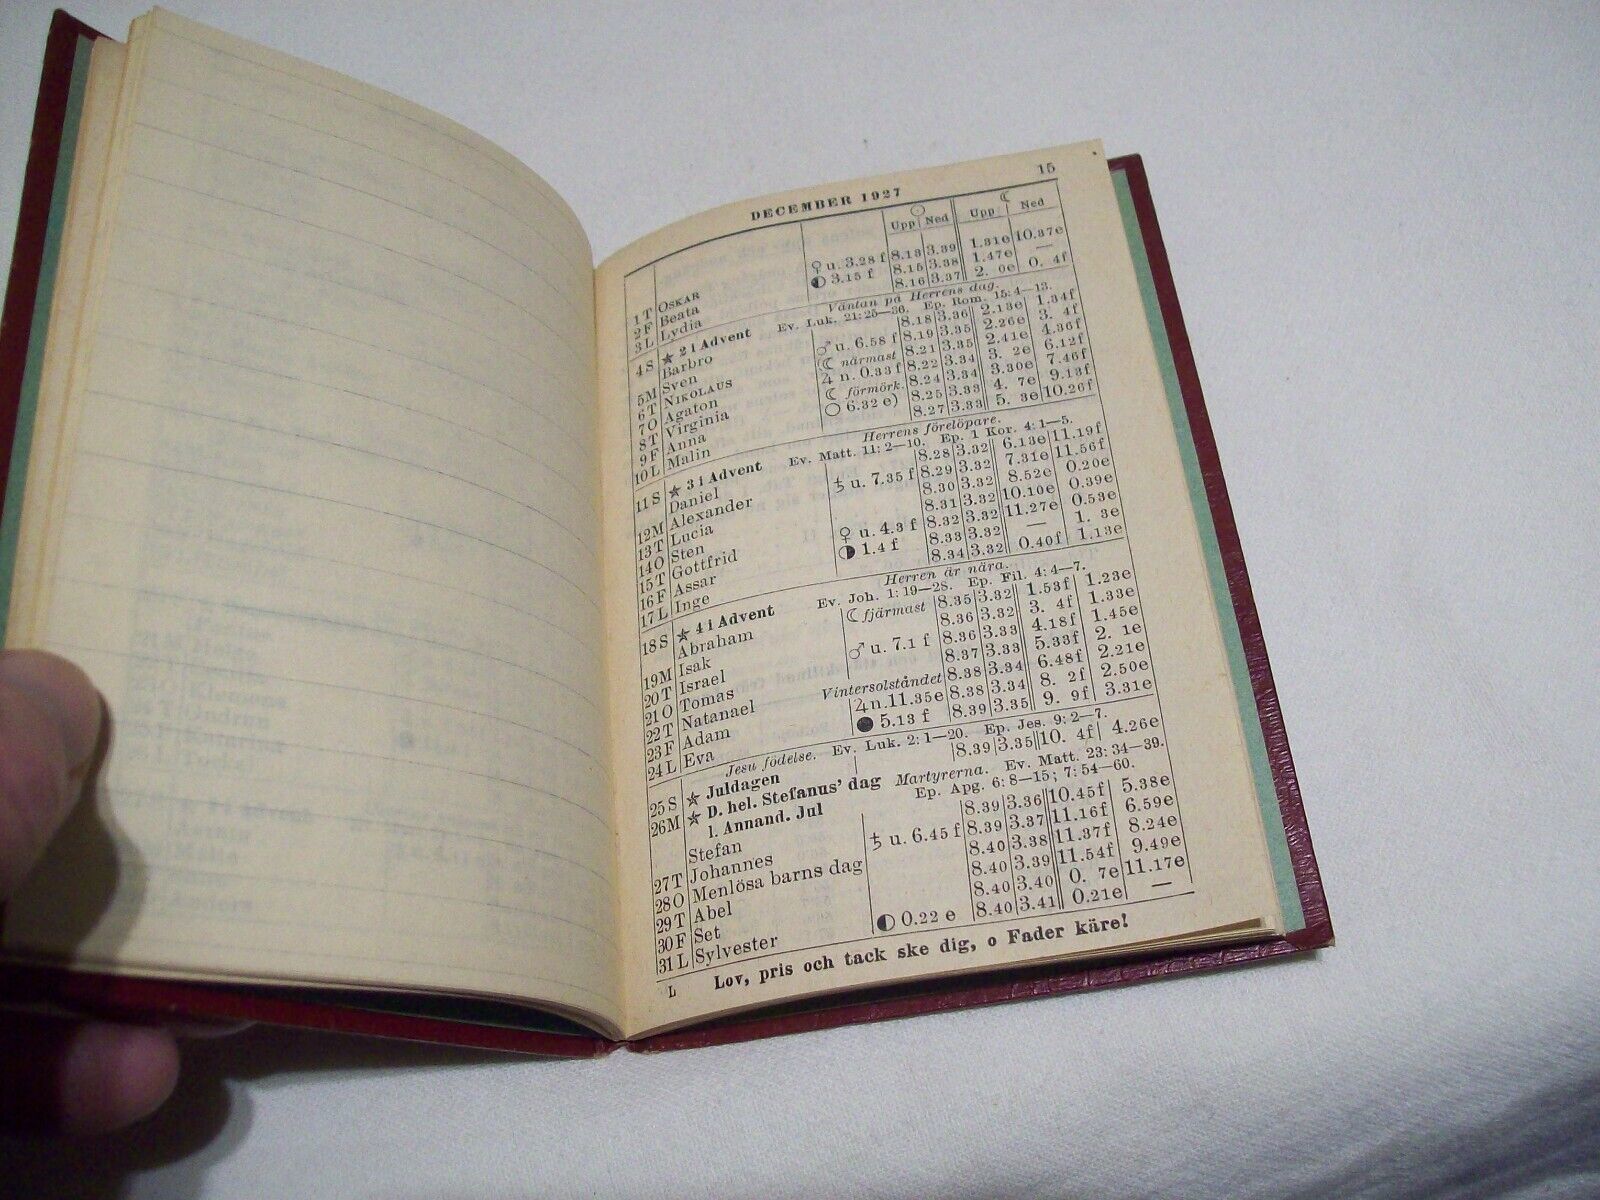 DECEMBER 1927 15
☾
Upp Ned Upp Ned
1 T OSKAR ♀ u. 3.28 f 8.13 3.39 1.31e 10.37e
2 F Beata ◐ 3.15 f 8.15 3.38 1.47e —
3 L Lydia 8.16 3.37 2. 0e 0. 4f
Väntan på Herrens dag.
4 S ★ 2 i Advent Ev. Luk. 21: 25—36. Ep. Rom. 15: 4—13.
Barbro 8.18 3.36 2.13e 1.34f
5 M Sven ♂ u. 6.58 f 8.19 3.35 2.26e 3. 4f
6 T NIKOLAUS ☾ närmast 8.21 3.35 2.41e 4.36f
7 O Agaton ♃ n. 0.33 f 8.22 3.34 3. 2e 6.12f
8 T Virginia ☾ förmörk. 8.24 3.34 3.30e 7.46f
9 F Anna ○ 6.32 e) 8.25 3.33 4. 7e 9.13f
10 L Malin 8.27 3.33 5. 3e 10.26f
Herrens förelöpare.
11 S ★ 3 i Advent Ev. Matt. 11: 2—10. Ep. 1 Kor. 4: 1—5.
Daniel 8.28 3.32 6.13e 11.19f
12 M Alexander ♄ u. 7.35 f 8.29 3.32 7.31e 11.56f
13 T Lucia 8.30 3.32 8.52e 0.20e
14 O Sten 8.31 3.32 10.10e 0.39e
15 T Gottfrid ♀ u. 4.3 f 8.32 3.32 11.27e 0.53e
16 F Assar ◑ 1.4 f 8.33 3.32 — 1. 3e
17 L Inge 8.34 3.32 0.40f 1.13e
Herren är nära.
18 S ★ 4 i Advent Ev. Joh. 1: 19—28. Ep. Fil. 4: 4—7.
Abraham ☾ fjärmast 8.35 3.32 1.53f 1.23e
19 M Isak 8.36 3.32 3. 4f 1.33e
20 T Israel ♂ u. 7.1 f 8.36 3.33 4.18f 1.45e
21 O Tomas 8.37 3.33 5.33f 2. 1e
22 T Natanael Vintersolståndet 8.38 3.34 6.48f 2.21e
23 F Adam ♃ n. 11.35e 8.38 3.34 8. 2f 2.50e
24 L Eva ● 5.13 f 8.39 3.35 9. 9f 3.31e
Jesu födelse. Ev. Luk. 2: 1—20. Ep. Jes. 9: 2—7.
25 S ★ Juldagen 8.39 3.35 10. 4f 4.26e
26 M ★ D. hel. Stefanus' dag Martyrerna. Ev. Matt. 23: 34—39.
l. Annand. Jul Ep. Apg. 6: 8—15; 7: 54—60.
Stefan 8.39 3.36 10.45f 5.38e
27 T Johannes ♄ u. 6.45 f 8.39 3.37 11.16f 6.59e
28 O Menlösa barns dag 8.40 3.38 11.37f 8.24e
29 T Abel 8.40 3.39 11.54f 9.49e
30 F Set 8.40 3.40 0. 7e 11.17e
31 L Sylvester ◐ 0.22 e 8.40 3.41 0.21e —
L Lov, pris och tack ske dig, o Fader käre!